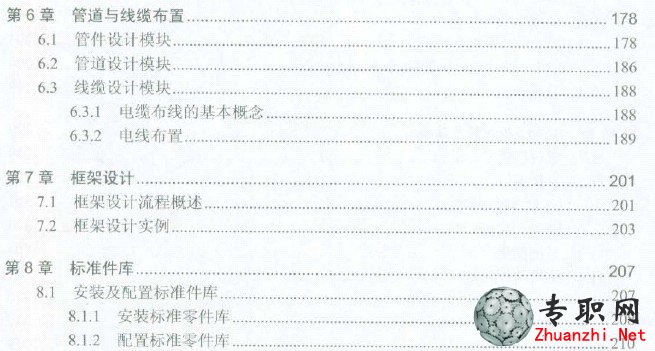 第 6 章 管道与线缆布置 178
6.1 管件设计模块 178
6.2 管道设计模块 186
6.3 线缆设计模块 188
6.3.1 电缆布线的基本概念 188
6.3.2 电线布置 189
第 7 章 框架设计 201
7.1 框架设计流程概述 201
7.2 框架设计实例 203
第 8 章 标准件库 207
8.1 安装及配置标准件库 207
8.1.1 安装标准零件库
8.1.2 配置标准零件库 210
专职网
Zhuanzhi.Net